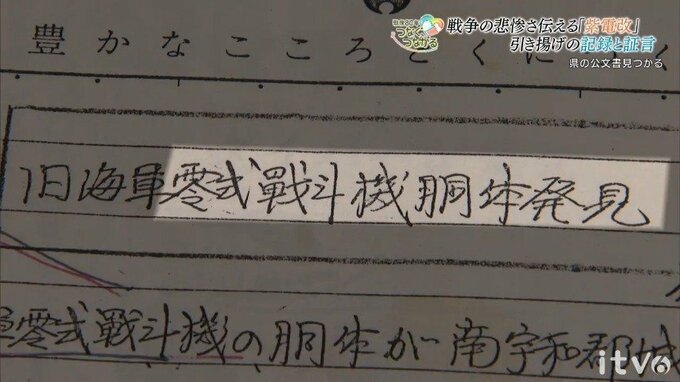 戦後80年 つなぐ つながる
戦争の悲惨さ伝える「紫電改」
引き揚げの記録と証言
県の公文書見つかる
豊かなこころとくに
く
旧海軍零式戦斗機胴体発見
軍零式戦斗機の胴体が南宇和郡城
itv6